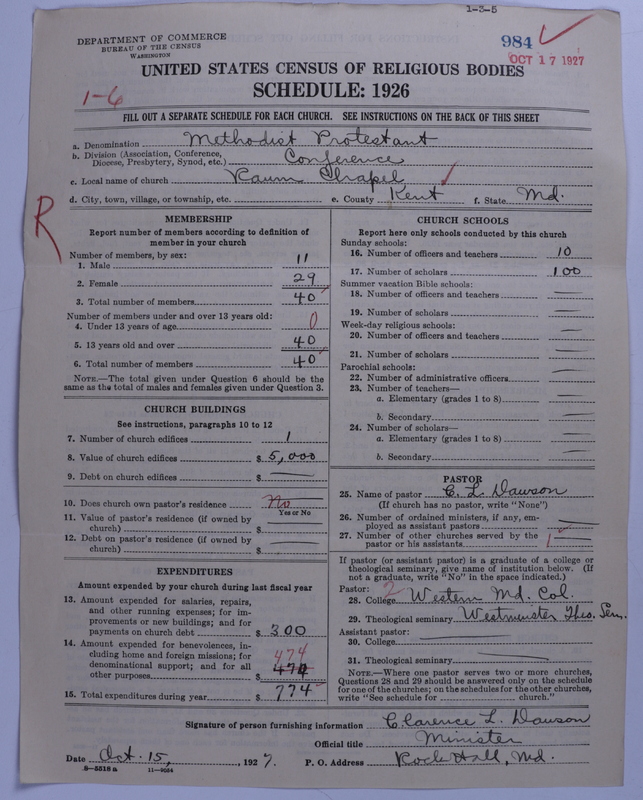 1-3-5
DEPARTMENT OF COMMERCE
BUREAU OF THE CENSUS
WASHINGTON
984
OCT 17 1927
UNITED STATES CENSUS OF RELIGIOUS BODIES
SCHEDULE: 1926
1-6
FILL OUT A SEPARATE SCHEDULE FOR EACH CHURCH. SEE INSTRUCTIONS ON THE BACK OF THIS SHEET
a. Denomination Methodist Protestant
b. Division (Association, Conference, Diocese, Presbytery, Synod, etc.) Conference
c. Local name of church Raum Chapel
d. City, town, village, or township, etc. e. County Kent f. State Md.
R
MEMBERSHIP
Report number of members according to definition of
member in your church
Number of members, by sex:
1. Male 11
2. Female 29
3. Total number of members 40
Number of members under and over 13 years old:
4. Under 13 years of age 0
5. 13 years old and over 40
6. Total number of members 40
NOTE.—The total given under Question 6 should be the
same as the total of males and females given under Question 3.
CHURCH BUILDINGS
See instructions, paragraphs 10 to 12
7. Number of church edifices 1
8. Value of church edifices $ 5,000
9. Debt on church edifices $
10. Does church own pastor's residence No
Yes or No
11. Value of pastor's residence (if owned by
church) $
12. Debt on pastor's residence (if owned by
church) $
EXPENDITURES
Amount expended by your church during last fiscal year
13. Amount expended for salaries, repairs,
and other running expenses; for im-
provements or new buildings; and for
payments on church debt $ 300
14. Amount expended for benevolences, in-
cluding home and foreign missions; for 474
denominational support; and for all
other purposes $
15. Total expenditures during year $ 774
CHURCH SCHOOLS
Report here only schools conducted by this church
Sunday schools:
16. Number of officers and teachers 10
17. Number of scholars 100
Summer vacation Bible schools:
18. Number of officers and teachers
19. Number of scholars
Week-day religious schools:
20. Number of officers and teachers
21. Number of scholars
Parochial schools:
22. Number of administrative officers
23. Number of teachers—
a. Elementary (grades 1 to 8)
b. Secondary
24. Number of scholars—
a. Elementary (grades 1 to 8)
b. Secondary
PASTOR
25. Name of pastor C. L. Dawson
(If church has no pastor, write "None")
26. Number of ordained ministers, if any, em-
ployed as assistant pastors
27. Number of other churches served by the
pastor or his assistants 1
If pastor (or assistant pastor) is a graduate of a college or
theological seminary, give name of institution below. (If
not a graduate, write "No" in the space indicated.)
Pastor: 2
28. College Western Md. Col.
29. Theological seminary Westminster Theo. Sem.
Assistant pastor:
30. College
31. Theological seminary
NOTE.—Where one pastor serves two or more churches,
Questions 28 and 29 should be answered only on the schedule
for one of the churches; on the schedules for the other churches,
write "See schedule for church."
Signature of person furnishing information Clarence L. Dawson
Official title Minister
Date Oct. 15, 1927. P. O. Address Rock Hall, Md.
8-5518 a 11-9034